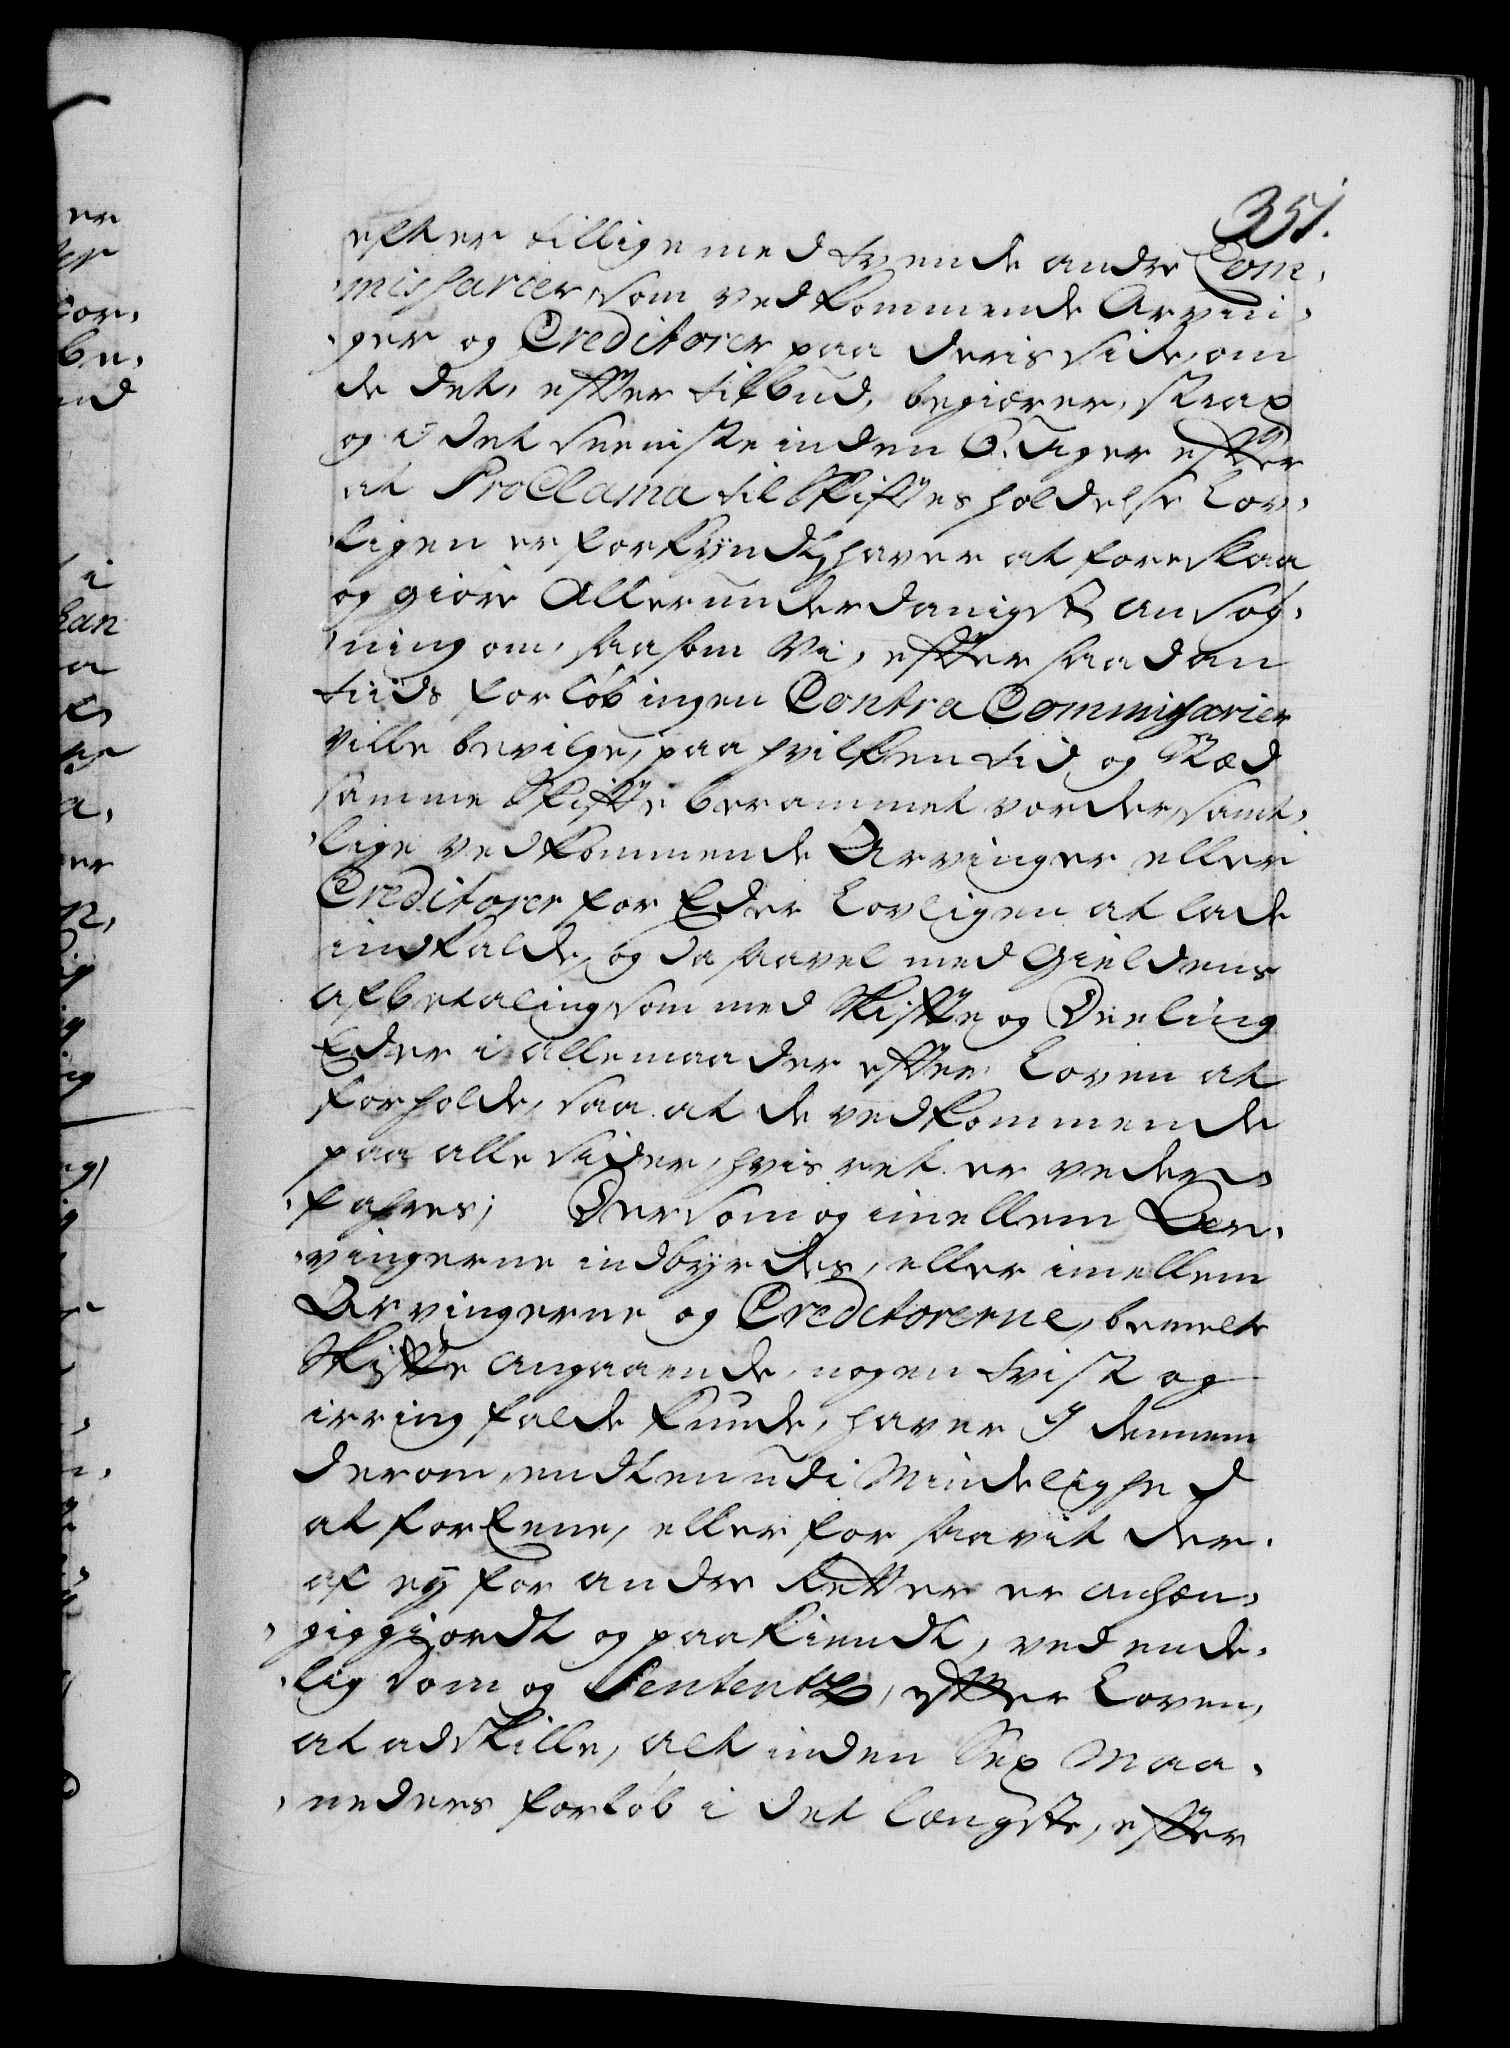 351.
efter tillige med tvende andre Com-
missarier, som vedkommende Arvin-
ger og Creditorer paa deris side, om
de det, efter tilbud, begiærer, strax
og i det seeniste inden 6. Uger efter
at Proclama til Skiftes holdelse Lov-
ligen er forkyndt, haver at foreslaa
og giøre Allerunderdanigst ansøg-
ning om, saasom Vi, efter saadan
tiids forløb ingen Contra Commissarier
ville bevilge, paa hvilken tid og Stæd
samme Skifte berammet vorder, samt-
lige vedkommende Arvinger eller
Creditorer for Eder Lovligen at lade
indkalde, og da saavel med Gieldens
afbetaling som med Skifte og Deeling
Eder i allemaader efter Loven at
forholde, saa at de vedkommende
paa alle sider, hvis ret er veder-
fahres; Dersom og imellem Ar-
vingerne indbyrdes, eller imellem
Arvingerne og Creditorerne, bemelte
Skifte angaaende, nogen tvist og
irring falde kunde, haver I dennem
derom, endten udi Mindelighed
at forEene, eller for saavit der-
af ey for andre Retter er anhæn-
giggiordt og paakiendt, ved ende-
lig dom og Sententz, efter Loven,
at adskille, alt inden Sex Maa-
neders forløb i det længste, efter